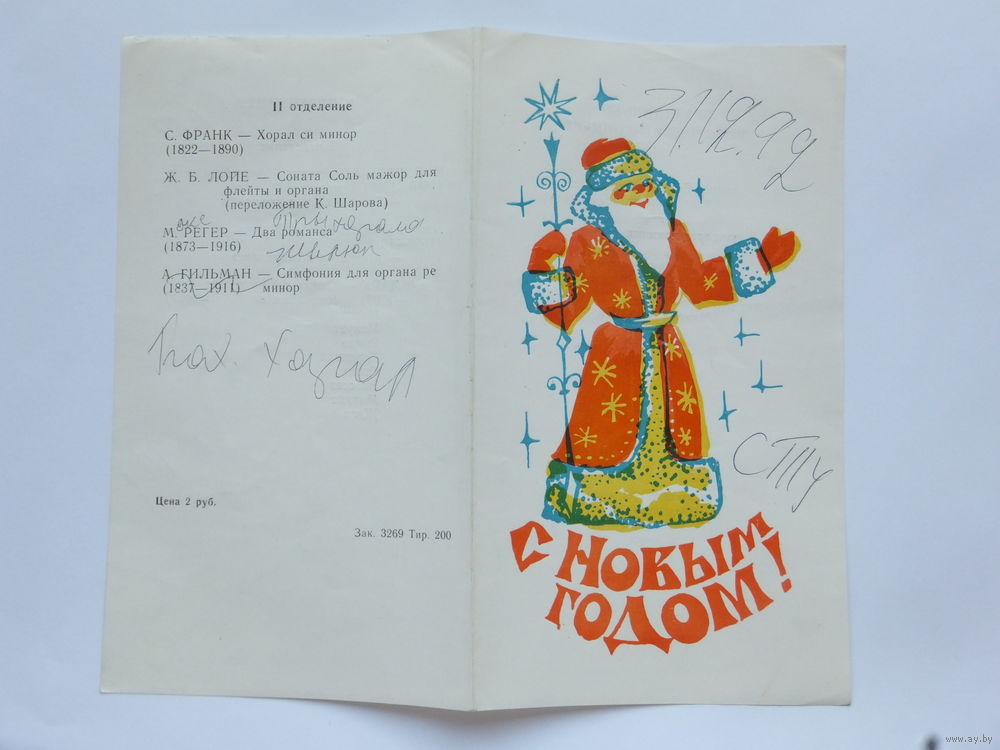 II отделение
С. ФРАНК — Хорал си минор
(1822—1890)
Ж. Б. ЛОЙЕ — Соната Соль мажор для
флейты и органа
(переложение К. Шарова)
М. РЕГЕР — Два романса
(1873—1916)
А. ГИЛЬМАН — Симфония для органа ре
(1837—1911) минор
Бах.
Цена 2 руб.
Зак. 3269 Тир. 200
31 12. 92
С НОВЫМ
ГОДОМ!
www.ay.by